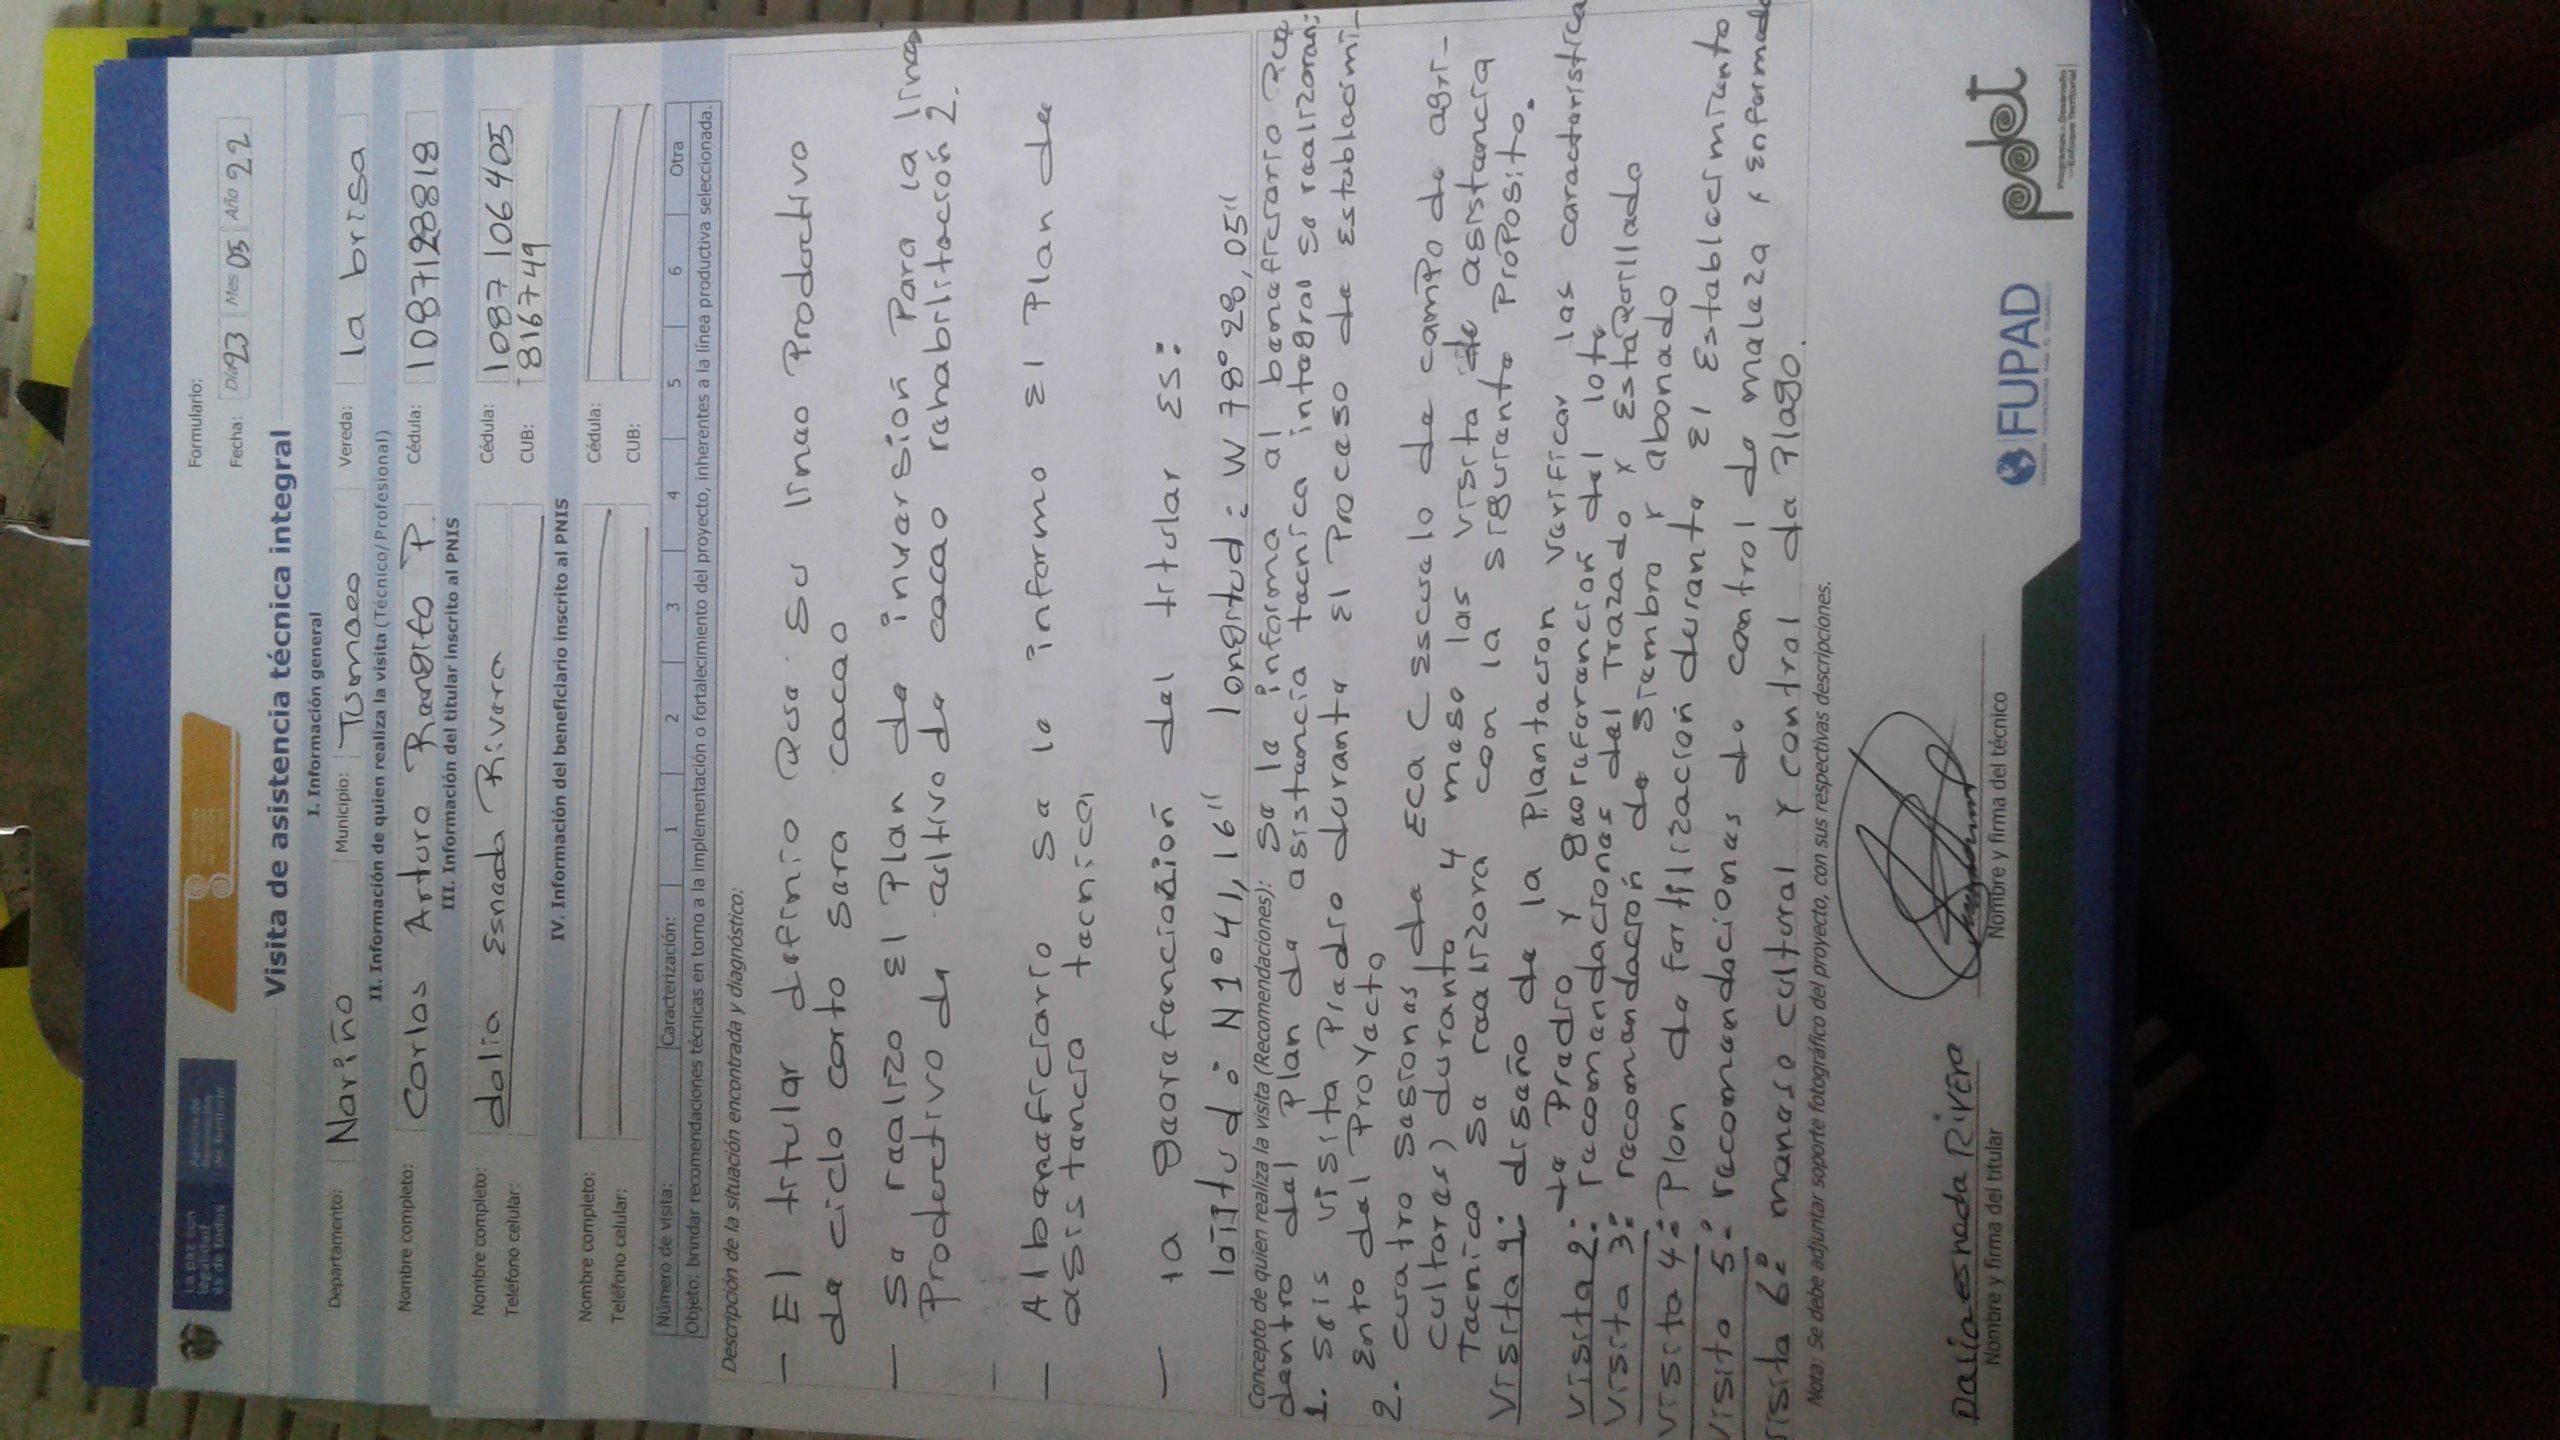 La paz con legalidad es de todos
Agencia de Renovación del Territorio
Formulario:
Fecha: Día 23 Mes 05 Año 22
Visita de asistencia técnica integral
I. Información general
Departamento: Nariño Municipio: Tumaco Vereda: la brisa
II. Información de quien realiza la visita (Técnico/Profesional)
Nombre completo: Carlos Arturo Rengifo P. Cédula: 1087128818
III. Información del titular inscrito al PNIS
Nombre completo: dalia Esneda Rivera Cédula: 1087106405
Teléfono celular: CUB: 816749
IV. Información del beneficiario inscrito al PNIS
Nombre completo: Cédula:
Teléfono celular: CUB:
Número de visita: Caracterización: 1 2 3 4 5 6 Otra
Objeto: brindar recomendaciones técnicas en torno a la implementación o fortalecimiento del proyecto, inherentes a la línea productiva seleccionada.
Descripción de la situación encontrada y diagnóstico:
— El titular definio que su linea Productivo
de ciclo corto sera cacao
— Se realizo El Plan de inversion Para la linea
Productivo de cultivo de cacao rehabilitación 2.
— Al beneficiario se le informo El Plan de
asistancia tecnica
— la georefenciación del titular Es:
latitud: N 1° 41, 16" longitud: W 78° 28, 05"
Concepto de quien realiza la visita (Recomendaciones): Se le informa al beneficiario que
dentro del Plan de asistancia tecnica integral se realizaran:
1. seis visita Predio durante El Proceso de Establecimi-
Ento del Proyecto
2. cuatro sesiones de Eca (Escuela de campo de agri-
cultores) durante 4 mese las visita de asistencia
Tecnica se realizara con la siguiente Proposito.
Visita 1: diseño de la Plantacion verificar las caracteristica
de Predio y georeferanción del lote
Visita 2: recomendaciones del Trazado y Estaquillado
Visita 3: recomendación de siembra y abonado
Visita 4: Plan de fertilización durante El Establecimiento
Visita 5: recomendaciones de control de maleza y Enfermeda
Visita 6: maneso cultural y control de Plaga.
Nota: Se debe adjuntar soporte fotográfico del proyecto, con sus respectivas descripciones.
Dalia esneda Rivera
Nombre y firma del titular Nombre y firma del técnico
FUPAD
pdet
Programas de Desarrollo con Enfoque Territorial